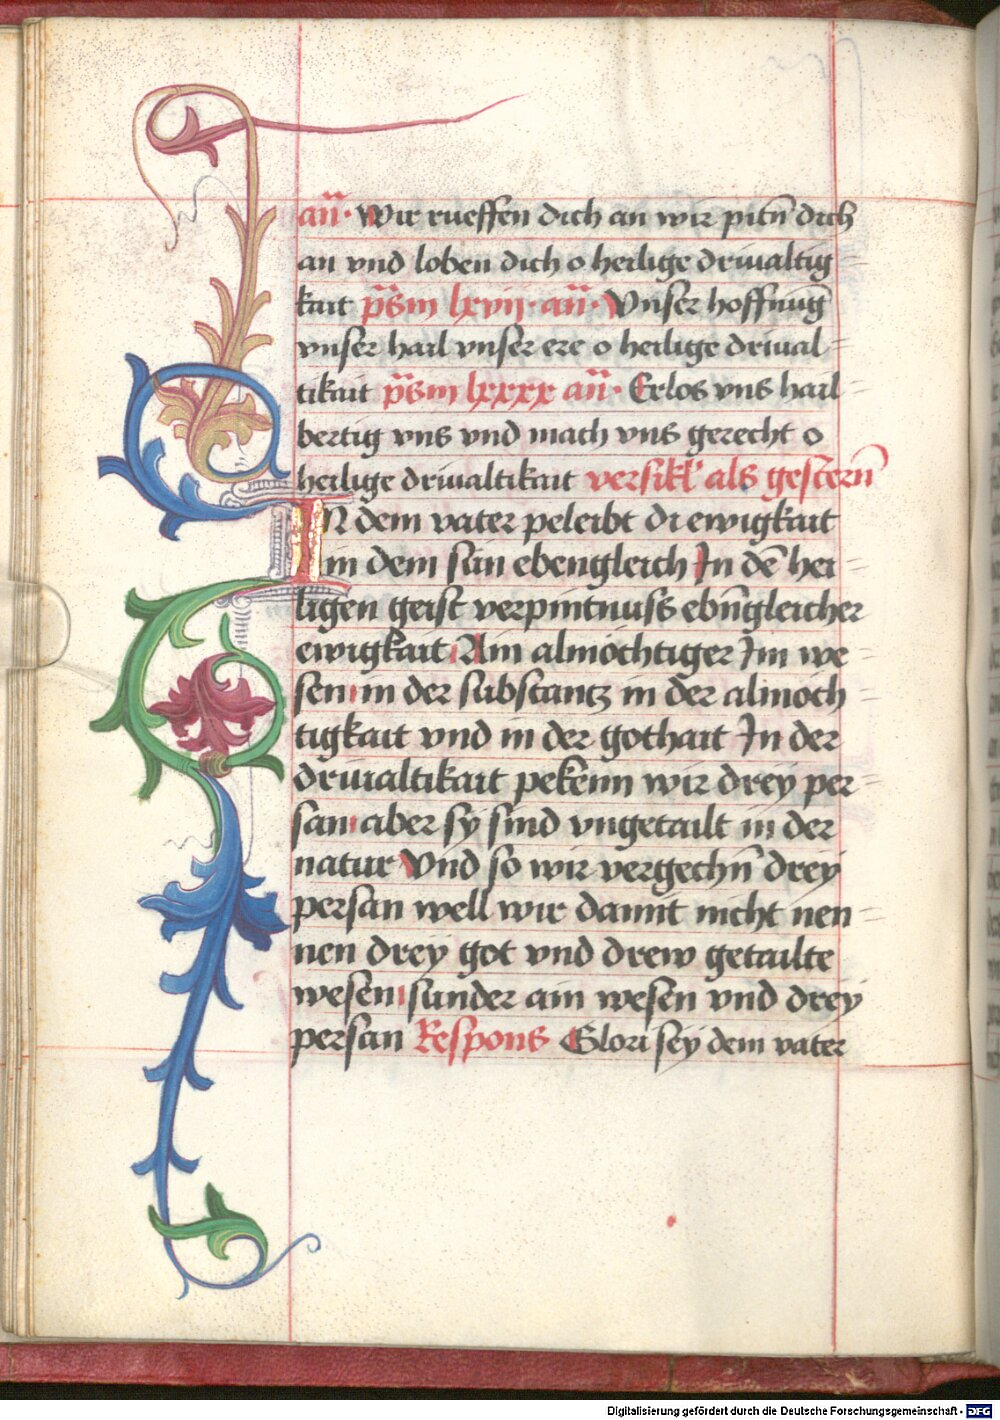 an̄· Wir rueffen dich an wir pitn̄ dich
an vnd loben dich o heilige driualtig
kait ps̄m lxvii· an̄· Vnser hoffnūg
vnser hail vnser ere o heilige driual
tikait ps̄m lxxxx an̄· Erlos vns hail
bertig vns vnd mach vns gerecht o
heilige driualtikait versikl' als gestern̄
IN dem vater peleibt di ewigkait
im dem sun ebengleich In dē hei
ligen geist verpintnuss ebn̄gleicher
ewigkait Ain almöchtiger Im we
sen in der substantz in der almöch
tigkait vnd in der gothait In der
driuialtikait pekenn wir drey per
san aber sy sind vngetailt in der
natur Vnd so wir vergechn̄ drey
persan well wir damit nicht nen
nen drey got vnd drew getailte
wesen sunder ain wesen vnd drey
persan Respons Glori sey dem vater
Digitalisierung gefördert durch die Deutsche Forschungsgemeinschaft - DFG